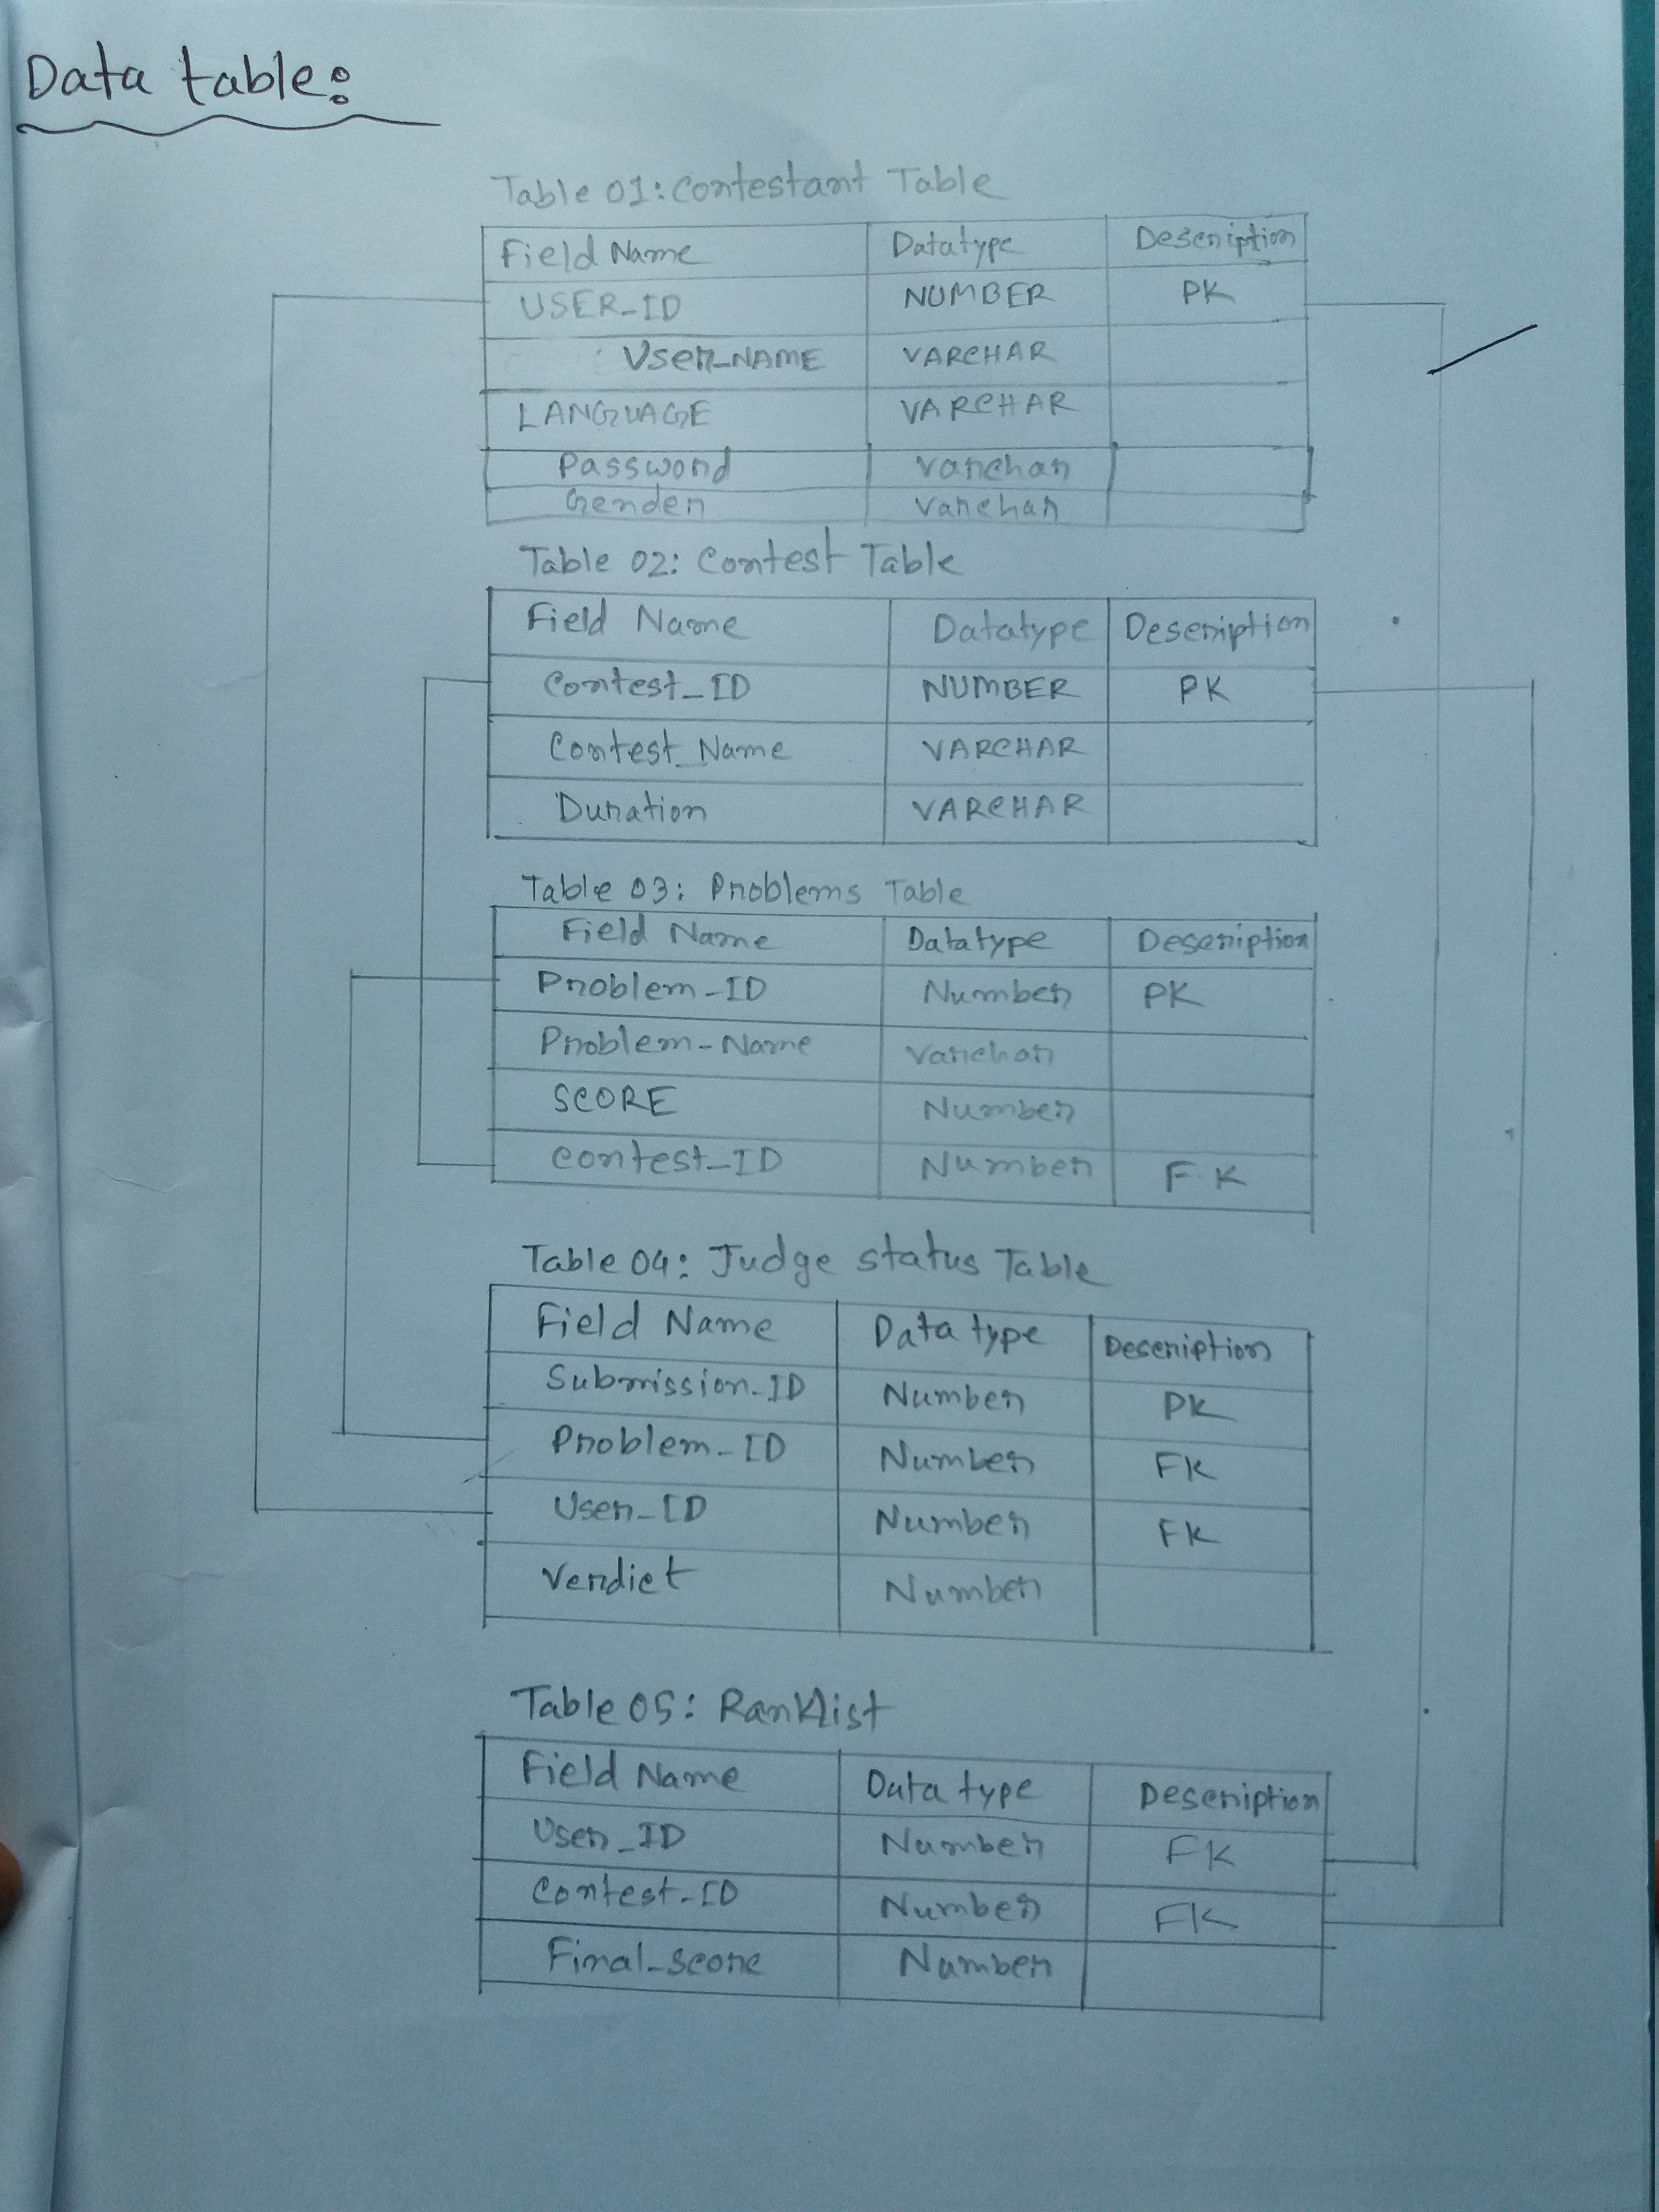 Data table:
Table 01: Contestant Table
Field Name Datatype Description
USER_ID NUMBER PK
User_NAME VARCHAR
LANGUAGE VARCHAR
Password varchar
Gender varchar
Table 02: Contest Table
Field Name Datatype Description
Contest_ID NUMBER PK
Contest_Name VARCHAR
Duration VARCHAR
Table 03: Problems Table
Field Name Datatype Description
Problem-ID Number PK
Problem-Name varchar
SCORE Number
contest_ID Number F.K
Table 04: Judge status Table
Field Name Data type Description
Submission-ID Number PK
Problem_ID Number FK
User_ID Number FK
Verdict Number
Table 05: Ranklist
Field Name Data type Description
User_ID Number FK
Contest-ID Number FK
Final_score Number